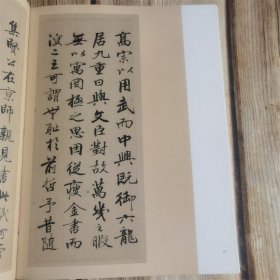 高宗以用武而中興既御六龍
居九重日與文臣對故萬幾之暇
無以寓罔極之思因從瘦金書而
演之三可謂無恥於前哲予昔隨
集賢公在京師親見書此